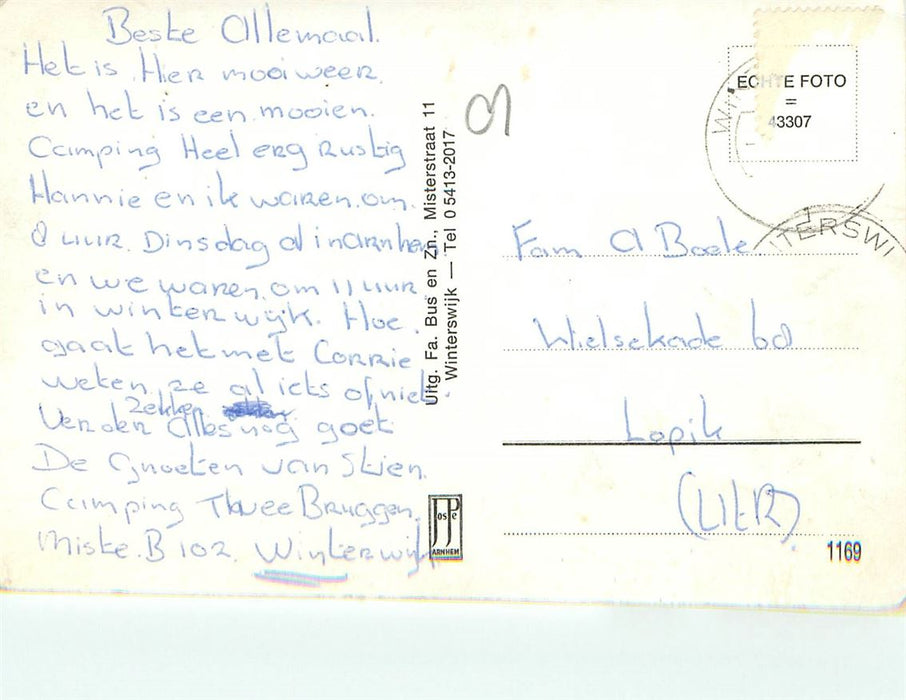 Beste Allemaal.
Het is Hier mooi weer.
en het is een mooien.
Camping Heel erg Rustig
Hannie en ik waren om.
8 uur. Dinsdag al in Arnhem
en we waren om 11 uur
in winterwijk. Hoe.
gaat het met Corrie
weten ze al iets of niet.
Zekker
Verder Alles nog goet
De Groeten van Stien.
Camping Twee Bruggen.
Miste. B 102. Winterwijk
Uitg. Fa. Bus en Zn., Misterstraat 11
Winterswijk — Tel 05413-2017
JosPe
ARNHEM
ECHTE FOTO
=
43307
WINTERSWI
1
Fam A Boele.
Wielsekade 60
Lopik
(Utr).
1169